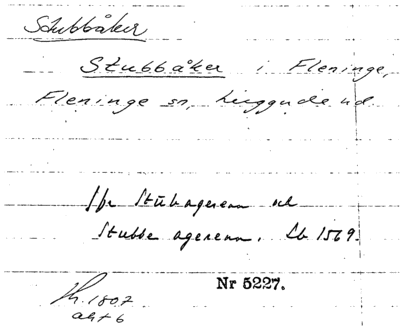 Stubbåker
Stubbåker i Fleninge,
Fleninge sn, Luggude hd
jfr Stubagerenn och
Stubbe agerenn. Lb 1569.
Nr 5227.
1807
akt 6